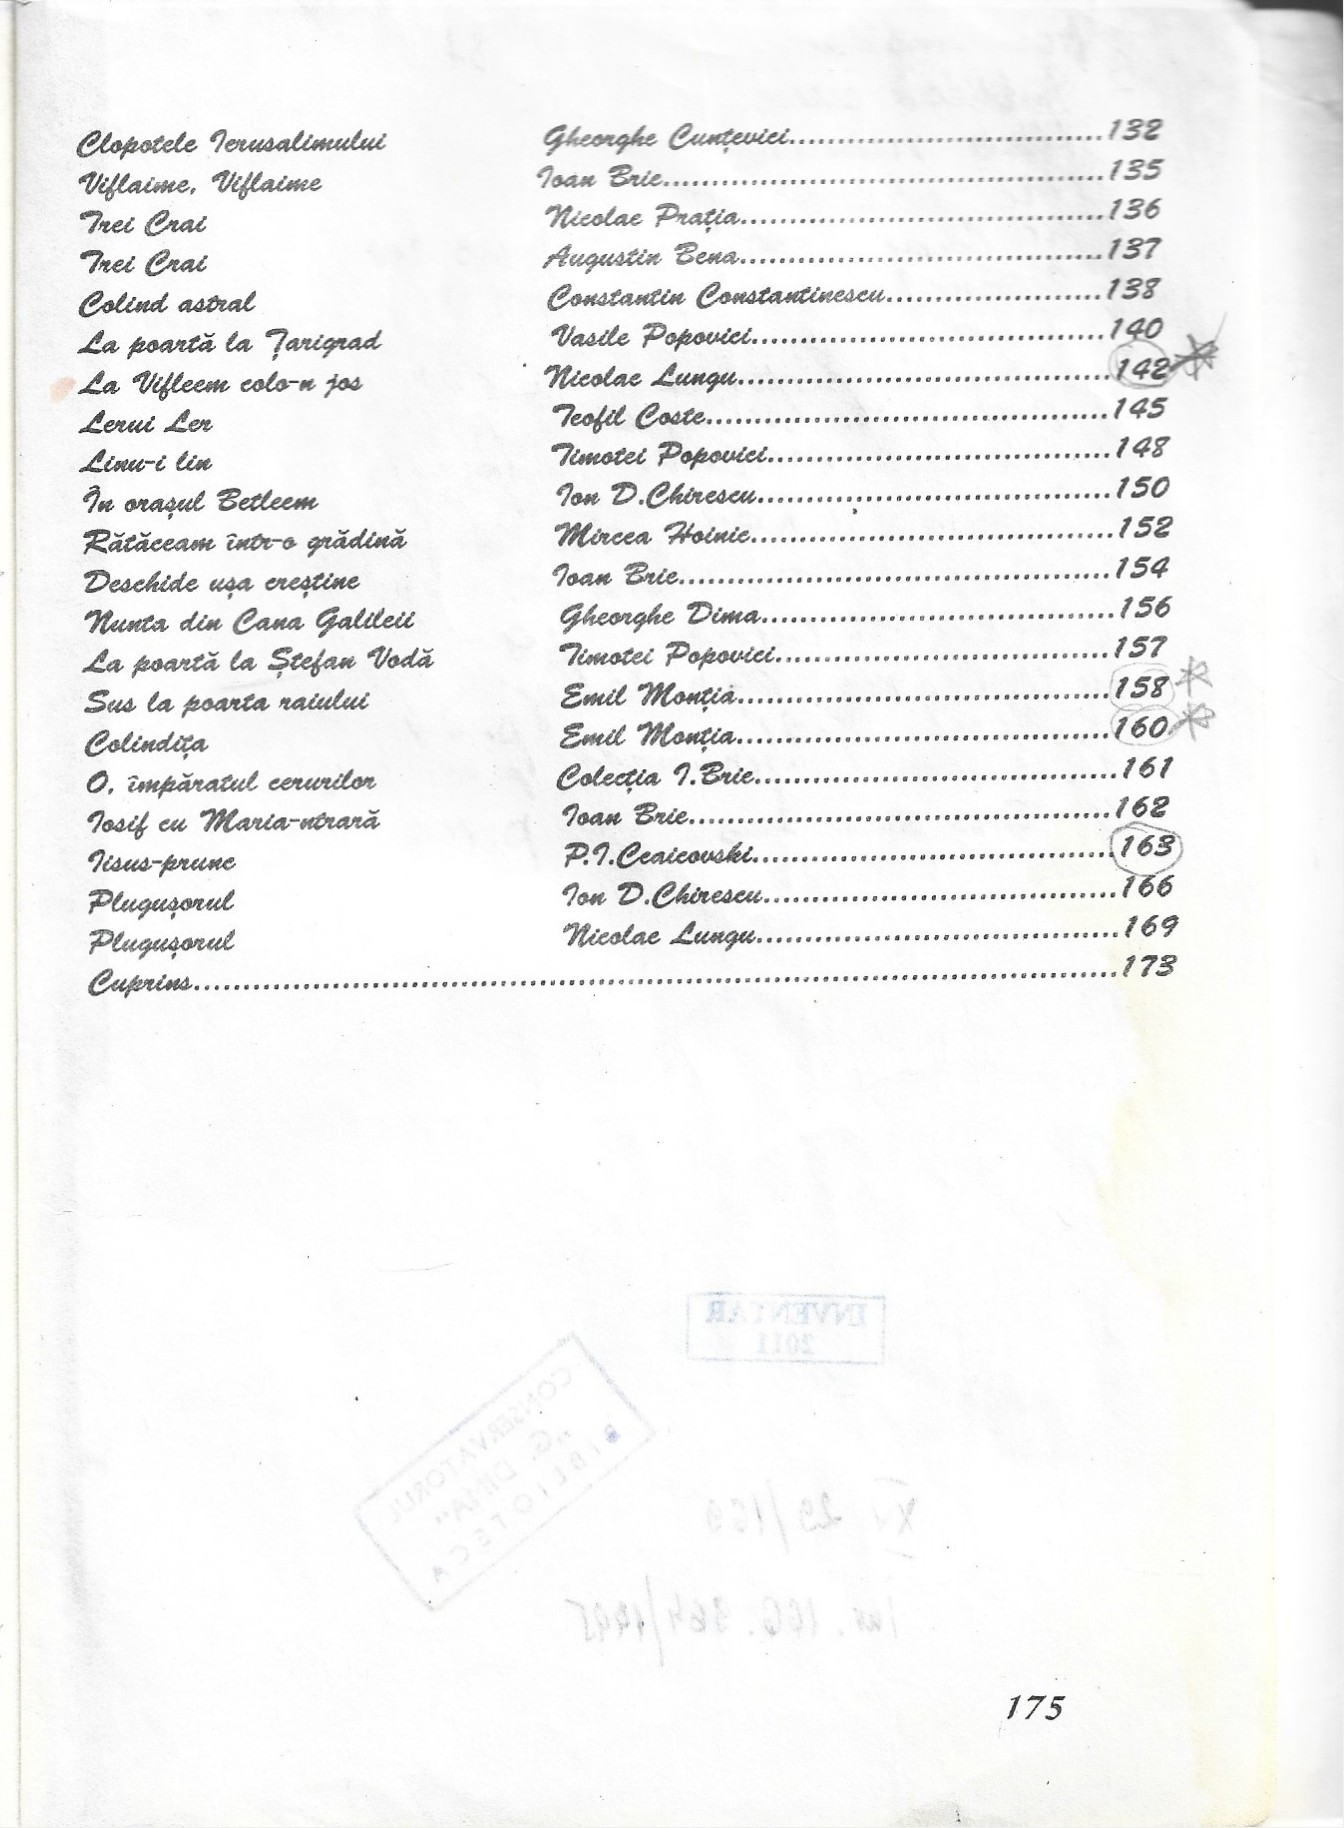 Clopotele Ierusalimului Gheorghe Cunțevici.....132
Viflaime, Viflaime Ioan Brie.....135
Trei Crai Nicolae Prația.....136
Trei Crai Augustin Bena.....137
Colind astral Constantin Constantinescu.....138
La poartă la Țarigrad Vasile Popovici.....140
La Vifleem colo-n jos Nicolae Lungu.....142
Lerui Ler Teofil Coste.....145
Linu-i lin Timotei Popovici.....148
În orașul Betleem Ion D.Chirescu.....150
Rătăceam într-o grădină Mircea Hoinic.....152
Deschide ușa creștine Ioan Brie.....154
Nunta din Cana Galileii Gheorghe Dima.....156
La poartă la Ștefan Vodă Timotei Popovici.....157
Sus la poarta raiului Emil Monția.....158
Colindița Emil Monția.....160
O, împăratul cerurilor Colecția I.Brie.....161
Iosif cu Maria-ntrară Ioan Brie.....162
Iisus-prunc P.I.Ceaicovski.....163
Plugușorul Ion D.Chirescu.....166
Plugușorul Nicolae Lungu.....169
Cuprins.....173
INVENTAR
2011
CONSERVATORUL
„G. DIMA"
BIBLIOTECA
175